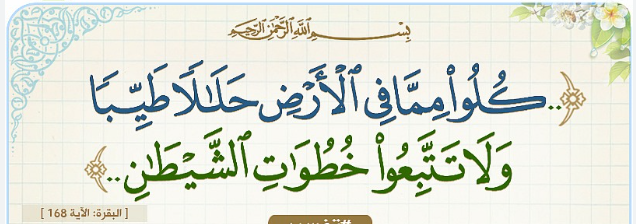 بِسْمِ اللَّهِ الرَّحْمَٰنِ الرَّحِيمِ
﴿..كُلُوا۟ مِمَّا فِى ٱلْأَرْضِ حَلَـٰلًا طَيِّبًا
وَلَا تَتَّبِعُوا۟ خُطُوَٰتِ ٱلشَّيْطَـٰنِ..﴾
[ البقرة: الآية 168 ]